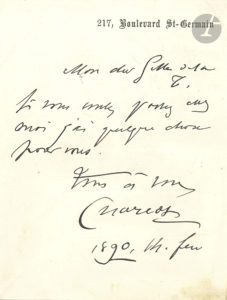 217, Boulevard St-Germain
Mon cher Gilles de la
T.
Si vous voulez passer chez
moi j'ai quelque chose
pour vous.
Tous à vous
Charcot
1890,